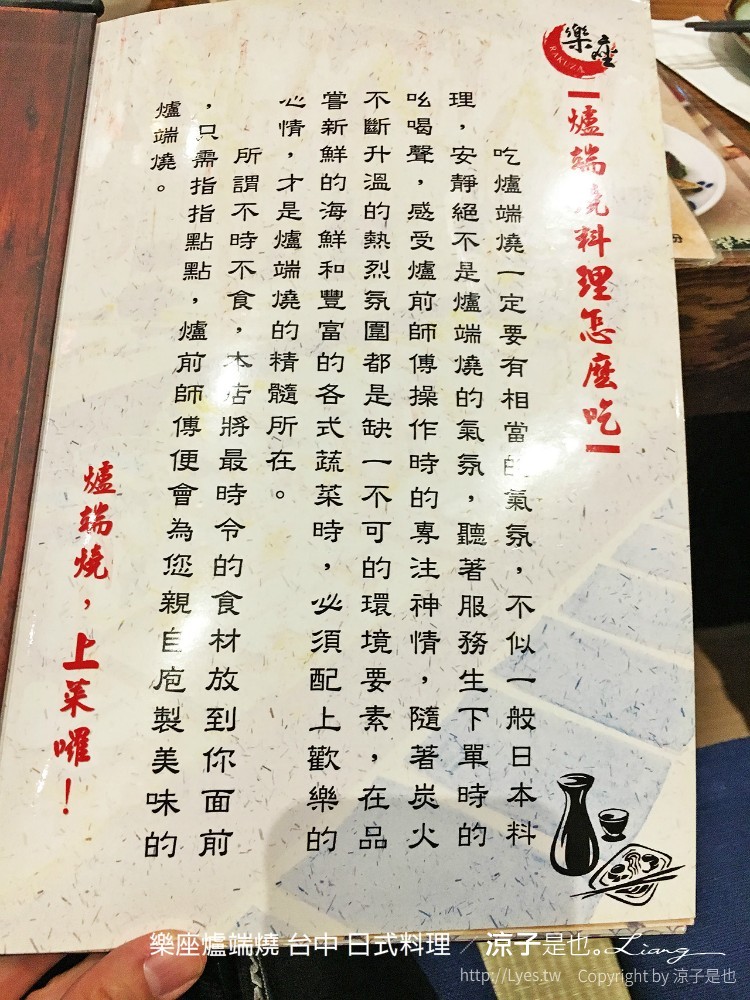 樂座
RAKUZA
爐端燒料理怎麼吃
吃爐端燒一定要有相當的氣氛，不似一般日本料
理，安靜絕不是爐端燒的氣氛，聽著服務生下單時的
吆喝聲，感受爐前師傅操作時的專注神情，隨著炭火
不斷升溫的熱烈氛圍都是缺一不可的環境要素，在品
嘗新鮮的海鮮和豐富的各式蔬菜時，必須配上歡樂的
心情，才是爐端燒的精髓所在。
所謂不時不食，本店將最時令的食材放到你面前
，只需指指點點，爐前師傅便會為您親自庖製美味的
爐端燒。
爐端燒，上菜囉！
份
樂座爐端燒 台中 日式料理 ╱ 涼子是也。Liang
http://Lyes.tw Copyright by 涼子是也